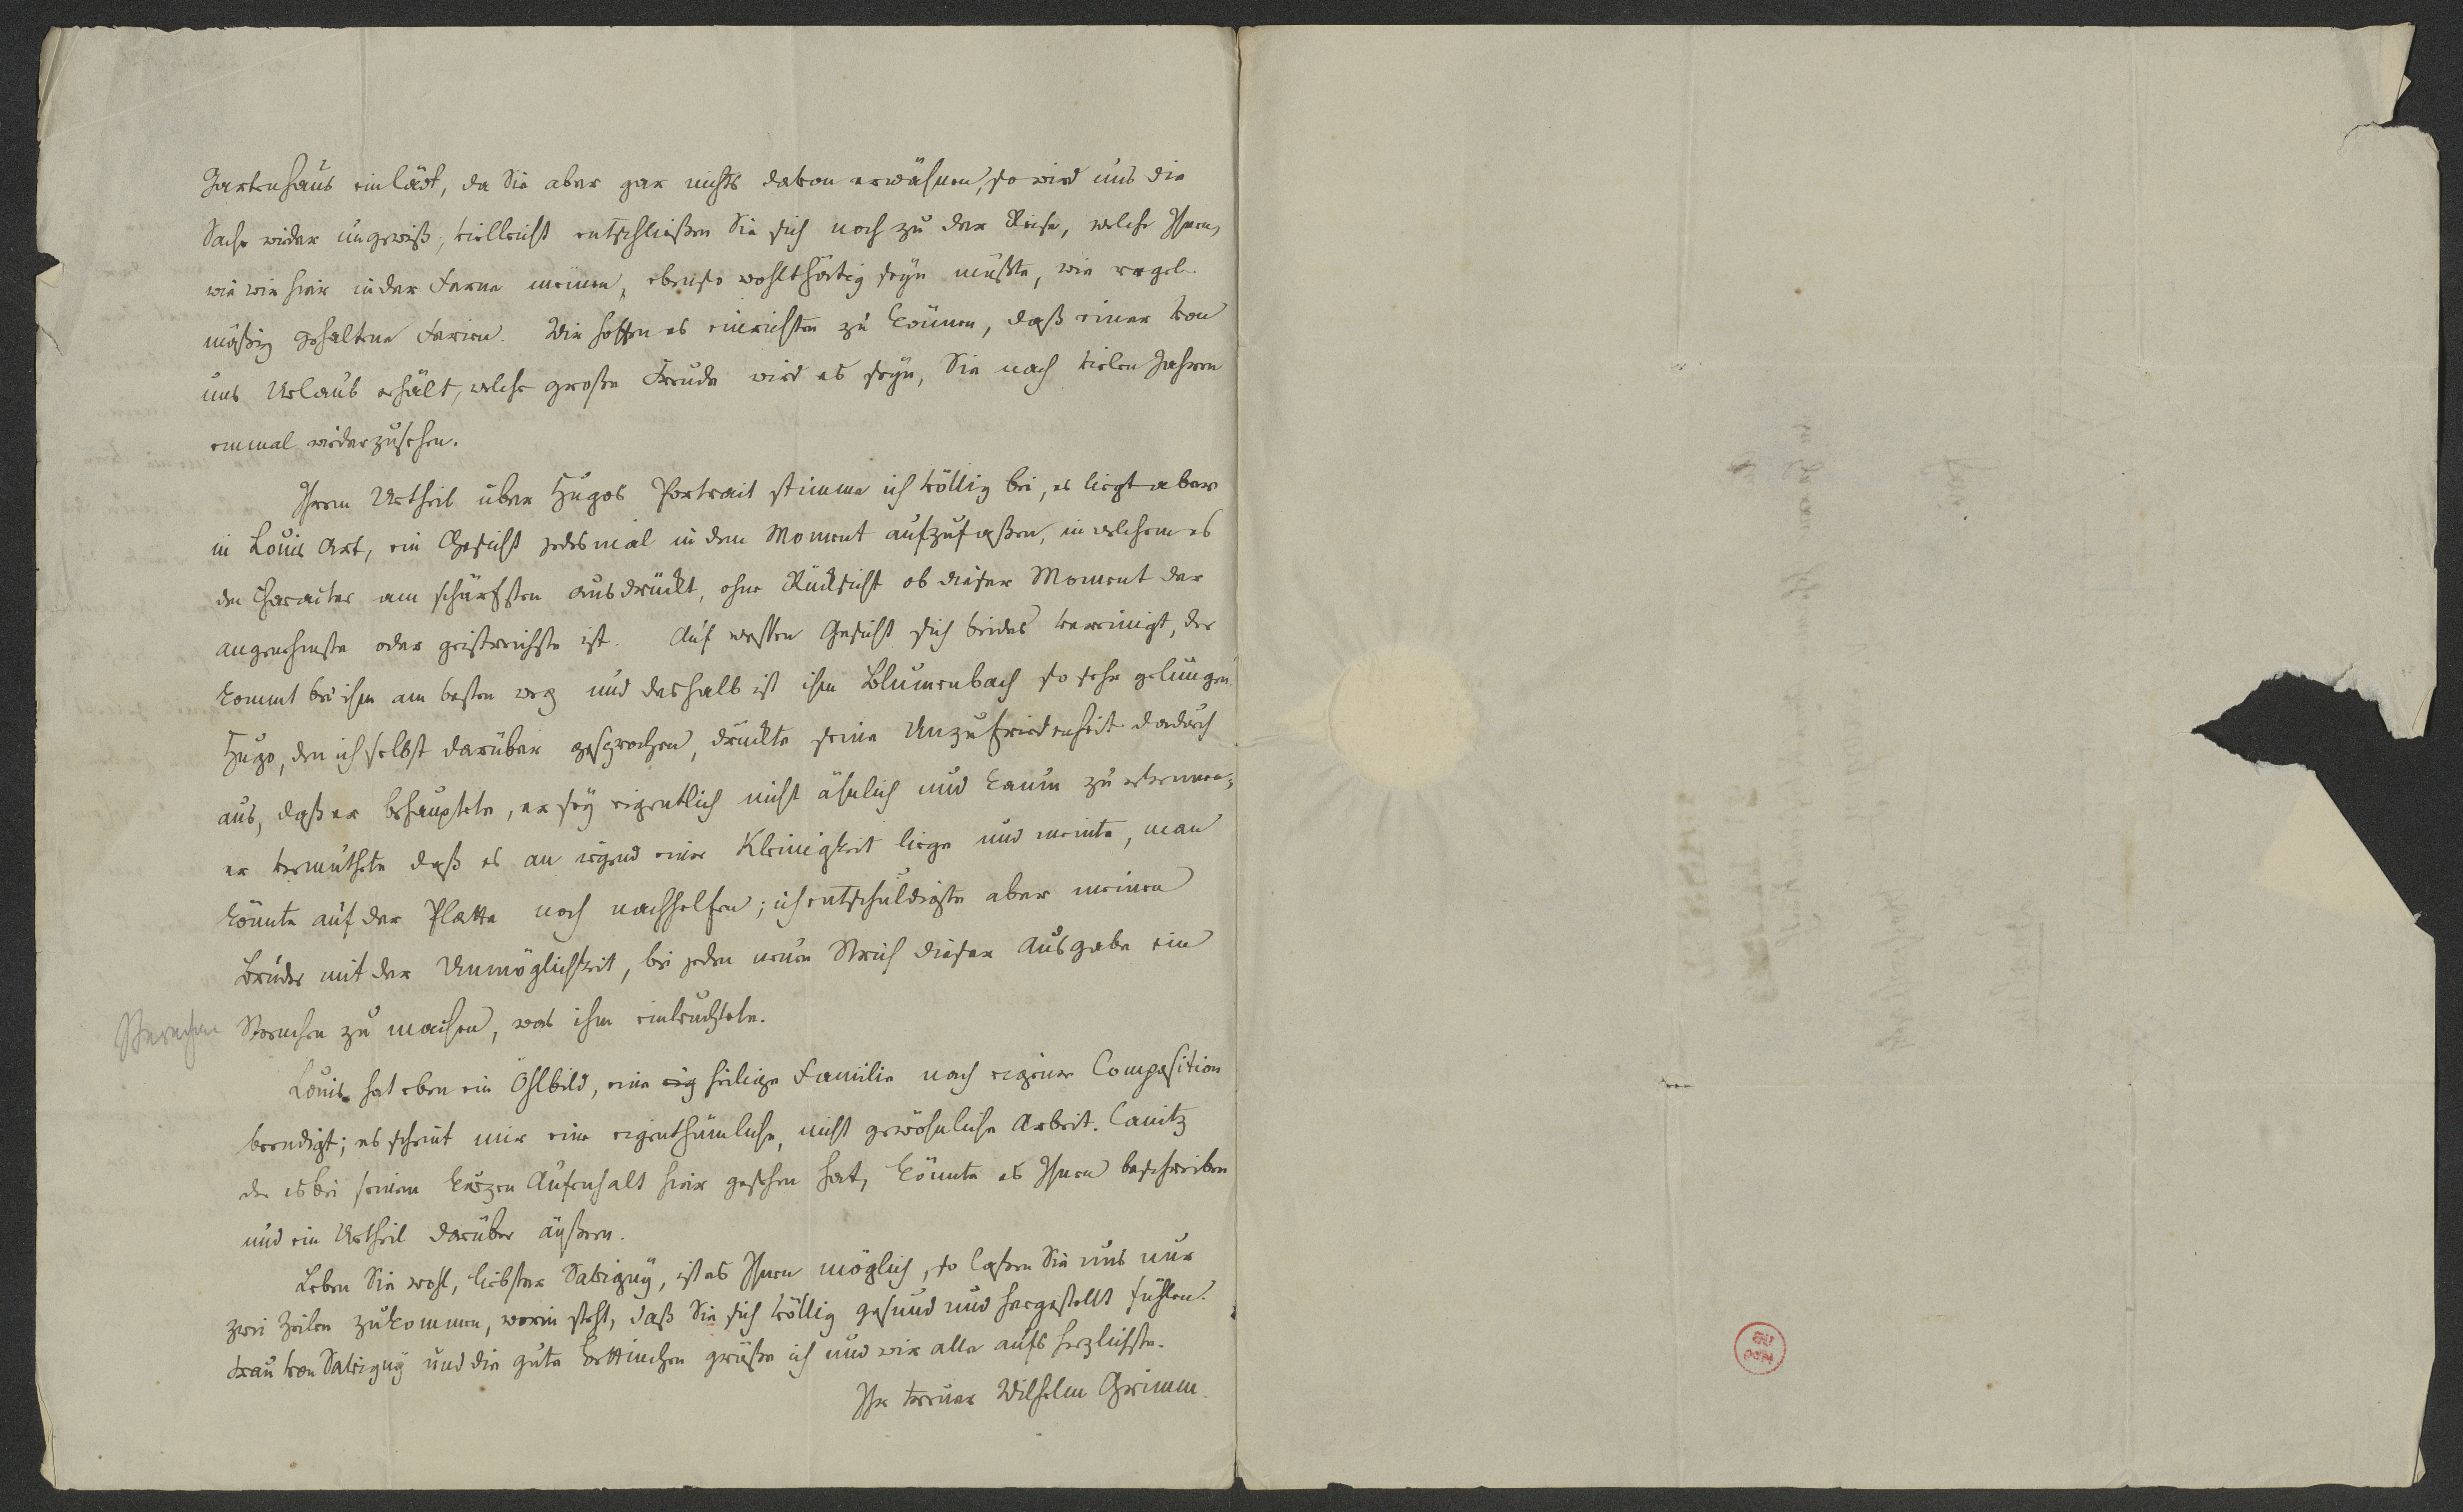 Gartenhaus einlädt, da Sie aber gar nichts davon erwähnen, so wird uns die
Sache wieder ungewiß, vielleicht entschließen Sie sich noch zu der Reise, welche Ihnen,
wie wir hier in der Ferne meinen, ebenso wohlthätig seyn müßte, wie regel-
mäßig gehaltene Ferien. Wir hoffen es einrichten zu können, daß einer von
uns Urlaub erhält, welche große Freude wird es seyn, Sie nach vielen Jahren
einmal wiederzusehen.
Ihrem Urtheil über Hugos Portrait stimme ich völlig bei, es liegt aber
in Louis Art, ein Gesicht jedesmal in dem Moment aufzufaßen, in welchem es
den Character am schärfsten ausdrückt, ohne Rücksicht ob dieser Moment der
angenehmste oder geistreichste ist. Auf wessen Gesicht sich beides vereinigt, der
kommt bei ihm am besten weg und deshalb ist ihm Blumenbach so sehr gelungen
Hugo, den ich selbst darüber gesprochen, drückte seine Unzufriedenheit dadurch
aus, daß er behauptete, er sey eigentlich nicht ähnlich und kaum zu erkennen;
er vermuthete daß es an irgend einer Kleinigkeit liege und meinte, man
könnte auf der Platte noch nachhelfen; ich entschuldigte aber meinen
Bruder mit der Unmöglichkeit, bei jeden neuen Strich dieser Ausgabe ein
Strichen zu machen, was ihm einleuchtete.
Louis hat eben ein Öhlbild, eine eig heilige Familie nach eigener Composition
beendigt; es scheint mir eine eigenthümliche, nicht gewöhnliche Arbeit. Canitz
der es bei seinem kurzen Aufenhalt hier gesehen hat, könnte es Ihnen beschreiben
und ein Urtheil darüber äußern.
Leben Sie wohl, liebster Savigny, ist es Ihnen möglich, so laßen Sie uns nur
zwei Zeilen zukommen, worin steht, daß Sie sich völlig gesund und hergestellt fühlen.
Frau von Savigny und die gute Bettinchen grüße ich und wir alle aufs herzlichste.
Ihr treuer Wilhelm Grimm.